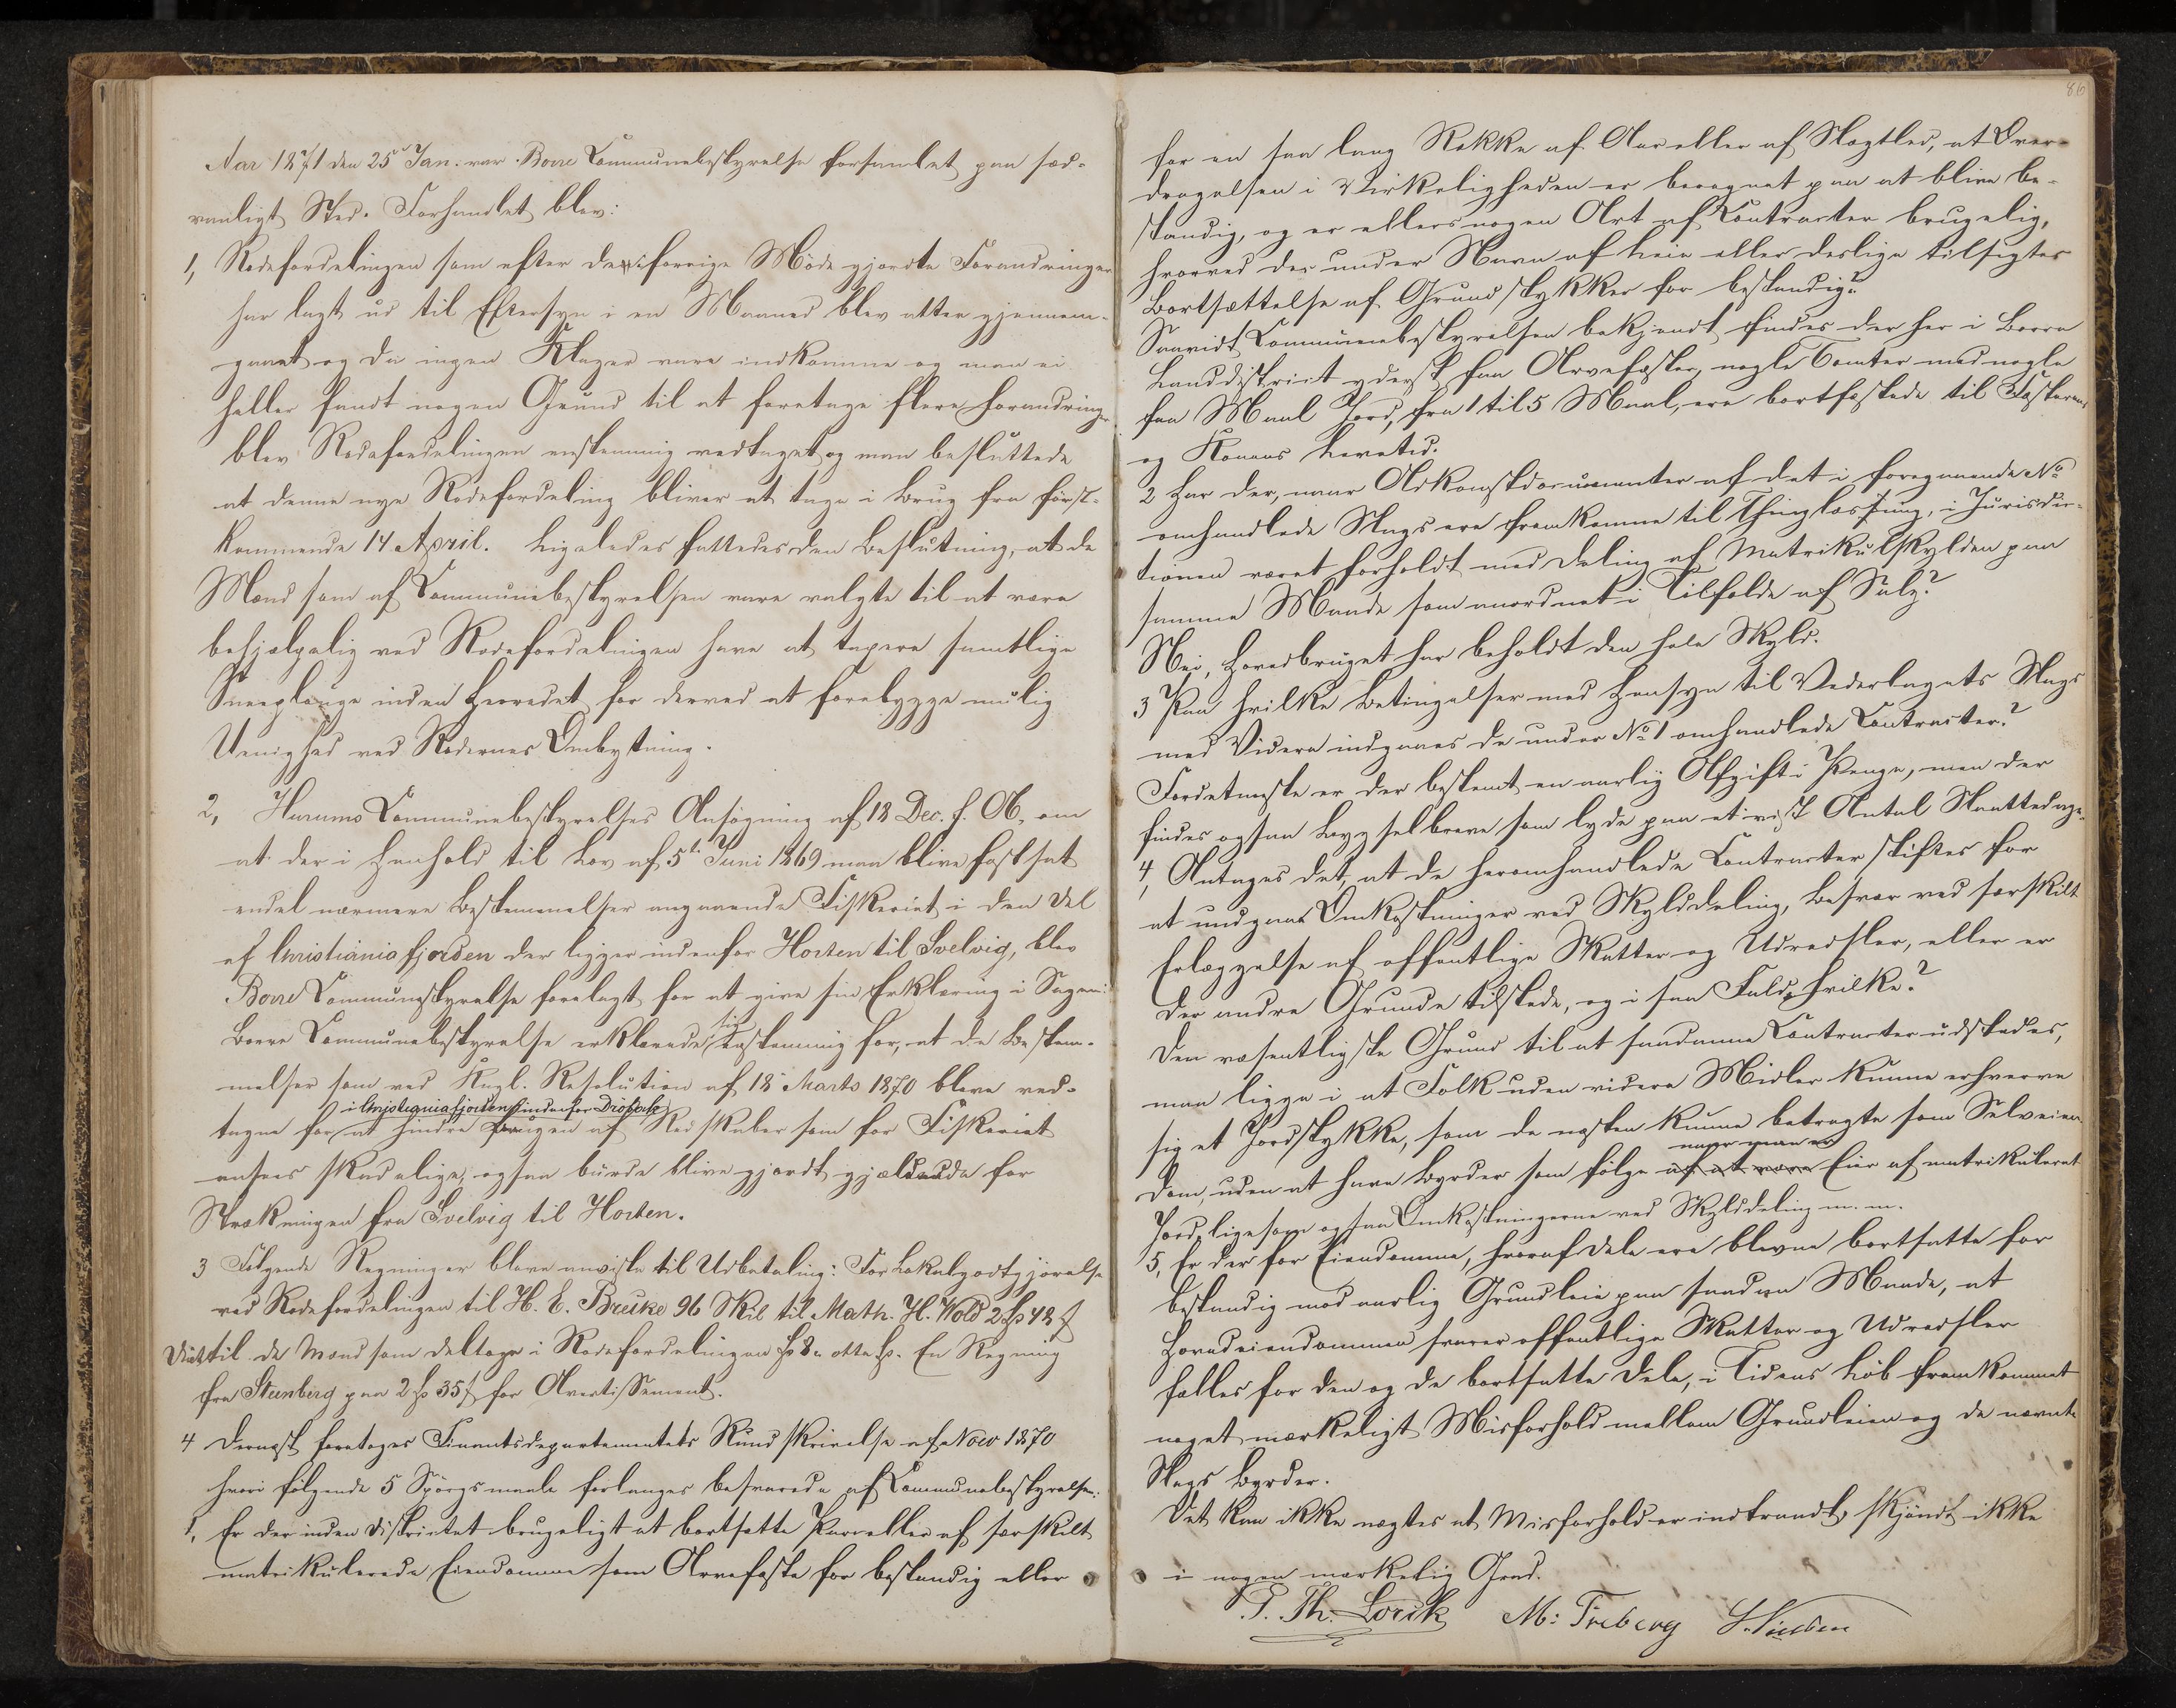 Aar 1871 den 25 Jan. var Borre Communebestyrelse forsamlet paa sæd-
vanligt Sted. Forhandlet blev:
1, Rodefordelingen som efter de i forrige Möde gjordte Forandringer
har lagt ud til Eftersyn i en Maaned blev atter gjennem-
gaaet og da ingen Klager vare indkomme og man ei
heller fandt nogen Grund til at foretage flere Forandringer
blev Rodefordelingen enstemmig vedtaget og man besluttede
at denne nye Rodefordeling bliver at tage i Brug fra först-
kommende 14 April. Ligeledes fattedes den Beslutning, at de
Mænd som af Communebestyrelsen vare valgte til at være
behjælpelig ved Rodefordelingen have at taxere samtlige
Sneeplouge inden Herredet for derved at forebygge mulig
Uenighed ved Rodernes Ombytning.
2, Hurums Communebestyrelses Ansögning af 18 Dec. f. A., om
at der i Henhold til Lov af 5te Juni 1869 maa blive fastsat
endel nærmere Bestemmelser angaaende Fiskeriet i den Del
af Christianiafjorden der ligger indenfor Horten til Svelvig, blev
Borre Communestyrelse forelagt for at give sin Erklæring i Sagen:
Borre Communebestyrelse erklærede sig enstemmig for, at de Bestem-
melser som ved Kngl. Resolution af 18 Marts 1870 bleve ved-
i Christianiafjorden (indenfor Dröbak)
tagne for at hindre Brugen af Redskaber som for Fiskeriet
ansees skadelige, ogsaa burde blive gjordt gjældende for
Strækningen fra Svelvig til Horten.
3 Fölgende Regninger bleve anviste til Udbetaling: For Lokalgodtgjörelse
ved Rodefordelingen til H. E. Breike 96 Skil til Math. H. Wold 2 Sp 48 ß
Diæt til de Mænd som deltoge i Rodefordelingen Sp 8 otte Sp. En Regning
fra Steenberg paa 2 Sp 35 ß for Avertissement.
4 Dernæst foretoges Finantsdepartementets Rundskrivelse af Nov 1870
hvori fölgende 5 Spörgsmaale forlanges besvarede af Communebestyrelsen:
1, Er der inden Districtet brugeligt at bortsætte Parceller af særskilt
matrikulerede Eiendomme som Arvefæste for bestandig eller
86
for en saa lang Række af Aar eller af Slægtled, at Over-
dragelsen i Virkeligheden er beregnet paa at blive be-
standig, og er ellers nogen Art af Contracter brugelig,
hvorved der under Navn af Leie eller deslige tilsigtes
Bortsættelse af Grundstykker for bestandig?
Saavidt Communebestyrelsen bekjendt findes der her i Borre
Landdistrict yderst faa Arvefæster, nogle Tomter med nogle
faa Maal Jord, fra 1 til 5 Maal, ere bortfæstede til Fæsterens
og Konens Levetid.
2 Har der, naar Adkomstdocumenter af det i foregaaende No
omhandlede Slags ere fremkomne til Thinglæsning, i Jurisdic-
tionen været forholdt med Deling af Matrikulskylden paa
samme Maade som anordnet i Tilfælde af Salg?
Nei, Hovedbruget har beholdt den hele Skyld.
3 Paa hvilke Betingelser med Hensyn til Vederlagets Slags
med Videre indgaaes de under No 1 omhandlede Contracter?
Fordetmeste er der bestemt en aarlig Afgift i Penge, men der
findes ogsaa Bygselbreve som lyde paa et vist Antal Slaattedage.
4, Antages det, at de heromhandlede Contracter stiftes for
at undgaa Omkostninger ved Skylddeling, Besvær ved særskilt
Erlæggelse af offentlige Skatter og Udredsler, eller er
der andre Grunde tilstede, og i saa Fald hvilke?
Den væsentligste Grund til at saadanne Contracter udstedes,
maa ligge i at Folk uden videre Midler kunne erhverve
sig et Jordstykke, som de næsten kunne betragte som Selveien-
naar man er
dom, uden at have Byrder som fölge af at være Eier af matrikuleret
Jord, ligesom ogsaa Omkostningerne ved Skylddeling m. m.
5, Er der for Eiendomme, hvoraf Dele ere blevne bortsatte for
bestandig mod aarlig Grundleie paa saadan Maade, at
Hovedeiendommen svarer offentlige Skatter og Udredsler
fælles for den og de bortsatte Dele, i Tidens Löb fremkommet
noget mærkeligt Misforhold mellem Grundleien og de nævnte
Slags Byrder.
Det kan ikke nægtes at Misforhold er indtraadt, skjöndt ikke
i nogen mærkelig Grad.
P. Th. Lorck M: Freberg